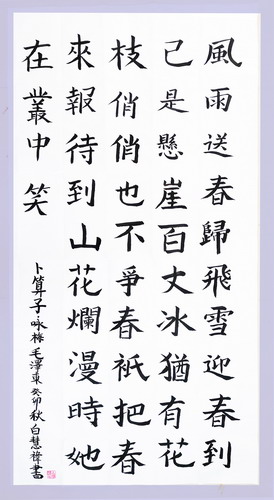 風雨送春歸飛雪迎春到
已是懸崖百丈冰猶有花
枝俏俏也不爭春衹把春
來報待到山花爛漫時她
在叢中笑
卜算子咏梅毛澤東癸卯秋白慧禕書